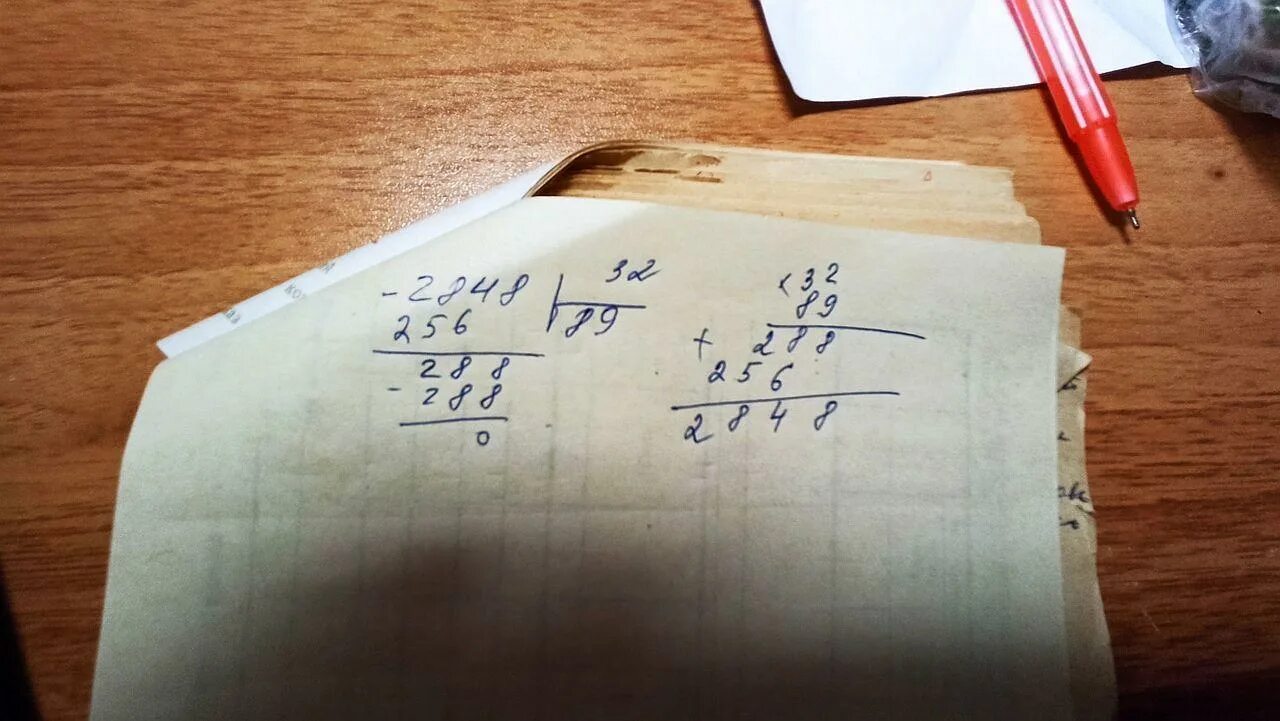 - 2848 32
256 89
288
- 288
0
× 32
89
+ 288
256
2848